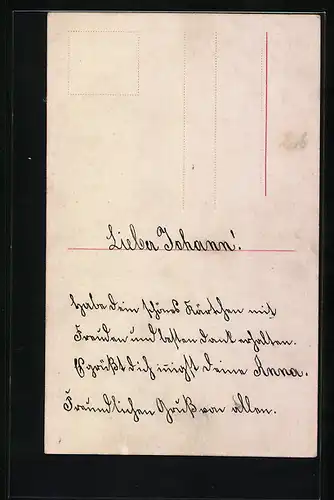 Lieber Johann!
Habe dein schönes Kärtchen mit
Freuden und besten dank erhalten.
Es grüßt dich innigst deine Anna.
Freundlichen Gruß von allen.